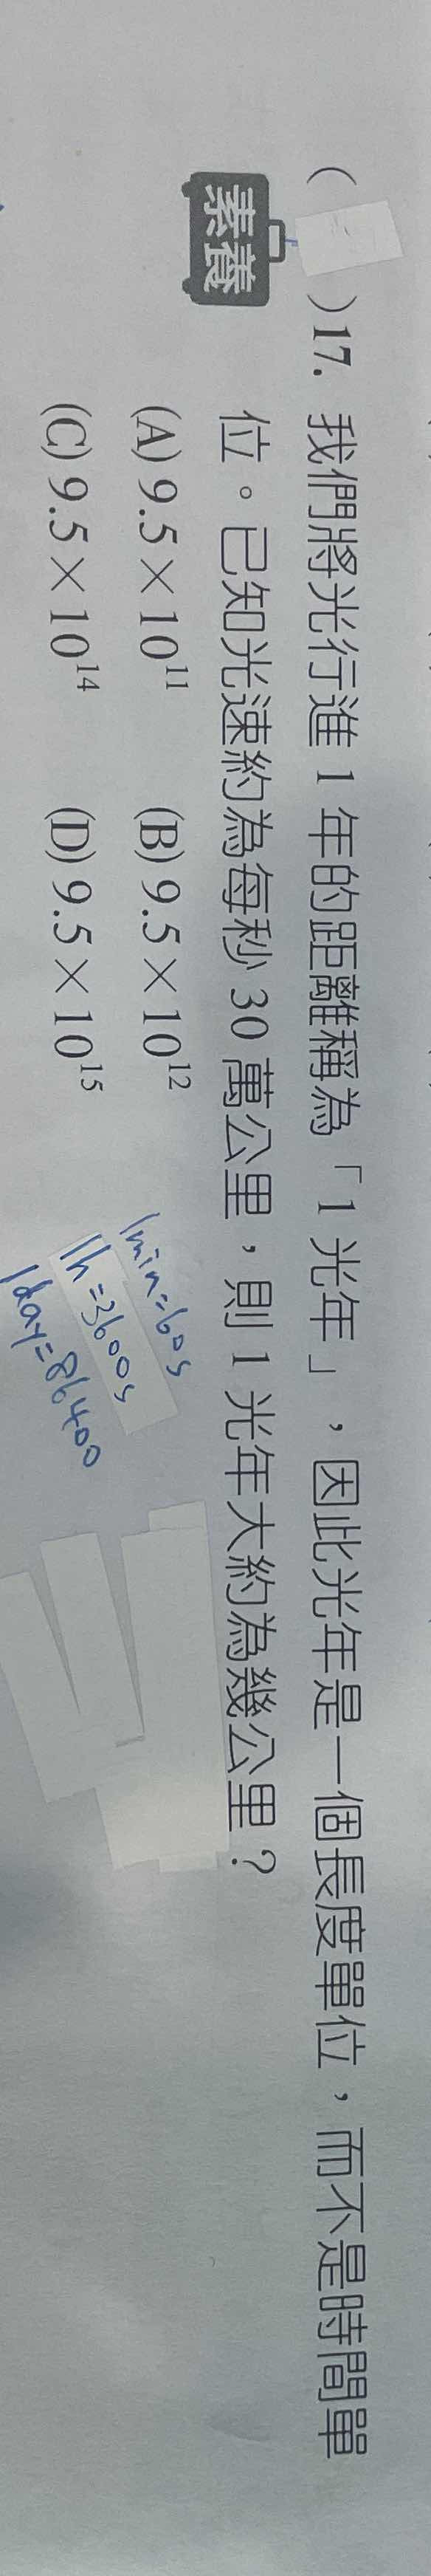 ( )17. 我們將光行進 1 年的距離稱為「1 光年」，因此光年是一個長度單位，而不是時間單
素養
位。已知光速約為每秒 30 萬公里，則 1 光年大約為幾公里？
(A) 9.5×10¹¹ (B) 9.5×10¹²
(C) 9.5×10¹⁴ (D) 9.5×10¹⁵
1min=60s
1h=3600s
1day=86400